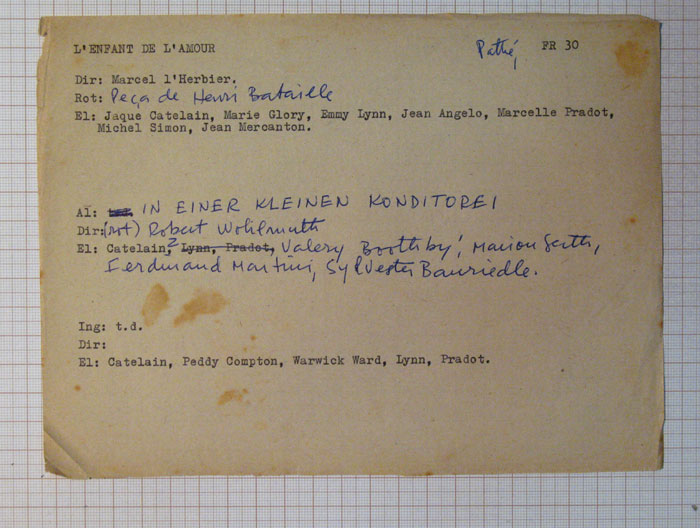 L'ENFANT DE L'AMOUR Pathé, FR 30
Dir: Marcel l'Herbier.
Rot: Peça de Henri Bataille
El: Jaque Catelain, Marie Glory, Emmy Lynn, Jean Angelo, Marcelle Pradot,
Michel Simon, Jean Mercanton.
Al: IN EINER KLEINEN KONDITOREI
Dir:(rot) Robert Wohlmuth
El: Catelain,? Lynn, Pradot, Valery Boothby, Marion
Ferdinand Martini, Sylvester Bauriedle.
Ing: t.d.
Dir:
El: Catelain, Peddy Compton, Warwick Ward, Lynn, Pradot.